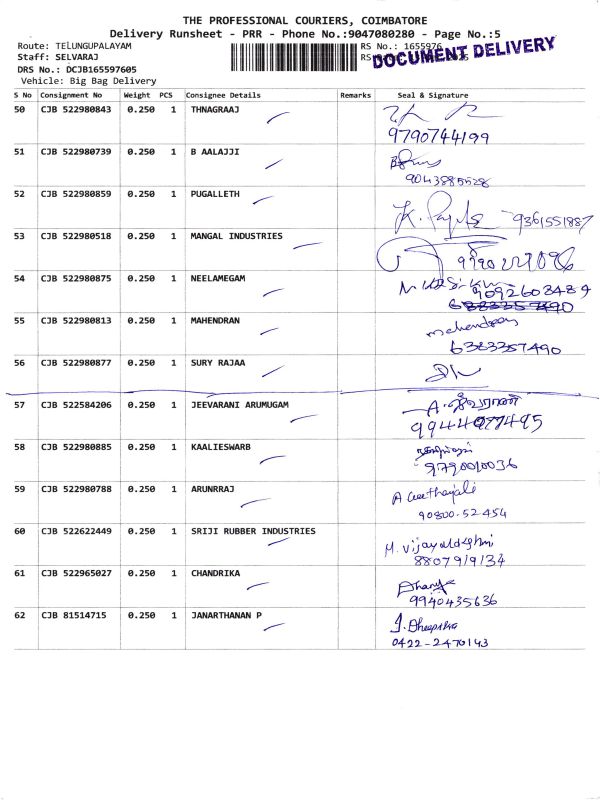 THE PROFESSIONAL COURIERS, COIMBATORE
Delivery Runsheet - PRR - Phone No.:9047080280 - Page No.:5
Route: TELUNGUPALAYAM
RS No.: 1655976
Staff: SELVARAJ
DOCUMENT DELIVERY
DRS No.: DCJB165597605
Vehicle: Big Bag Delivery
S No Consignment No Weight PCS Consignee Details Remarks Seal & Signature
50 CJB 522980843 0.250 1 THNAGRAAJ
9790744199
51 CJB 522980739 0.250 1 B AALAJJI
9043885528
52 CJB 522980859 0.250 1 PUGALLETH
9361551887
53 CJB 522980518 0.250 1 MANGAL INDUSTRIES
54 CJB 522980875 0.250 1 NEELAMEGAM
9092603489
55 CJB 522980813 0.250 1 MAHENDRAN
mahendran
6383357490
56 CJB 522980877 0.250 1 SURY RAJAA
57 CJB 522584206 0.250 1 JEEVARANI ARUMUGAM
A. ஜீவராணி
9944077495
58 CJB 522980885 0.250 1 KAALIESWARB
9790010036
59 CJB 522980788 0.250 1 ARUNRRAJ
A Geethanjali
90800-52454
60 CJB 522622449 0.250 1 SRIJI RUBBER INDUSTRIES
M. Vijayalakshmi
8807919134
61 CJB 522965027 0.250 1 CHANDRIKA
9940435636
62 CJB 81514715 0.250 1 JANARTHANAN P
0422-2470143